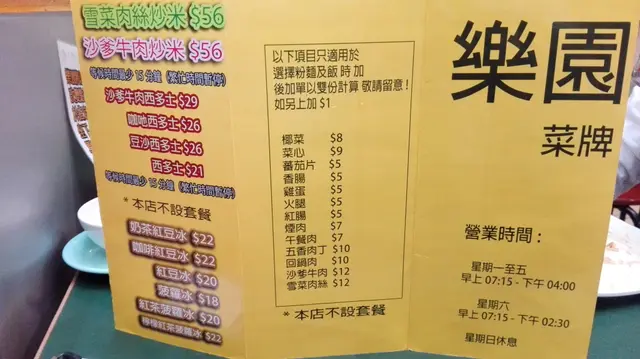 雪菜肉絲炒米 $56
沙爹牛肉炒米 $56
等候時間最少 15 分鐘 (繁忙時間暫停)
沙爹牛肉西多士 $29
咖吔西多士 $26
豆沙西多士 $26
西多士 $21
等候時間最少 15 分鐘 (繁忙時間暫停)
* 本店不設套餐
奶茶紅豆冰 $22
咖啡紅豆冰 $22
紅豆冰 $20
菠蘿冰 $18
紅茶菠蘿冰 $20
檸檬紅茶菠蘿冰 $22
以下項目只適用於
選擇粉麵及飯 時 加
後加單以雙份計算 敬請留意!
如另上加 $1
椰菜 $8
菜心 $9
蕃茄片 $5
香腸 $5
雞蛋 $5
火腿 $5
紅腸 $5
煙肉 $7
午餐肉 $7
五香肉丁 $10
回鍋肉 $10
沙爹牛肉 $12
雪菜肉絲 $12
* 本店不設套餐
樂園
菜牌
營業時間 :
星期一至五
早上 07:15 - 下午 04:00
星期六
早上 07:15 - 下午 02:30
星期日休息